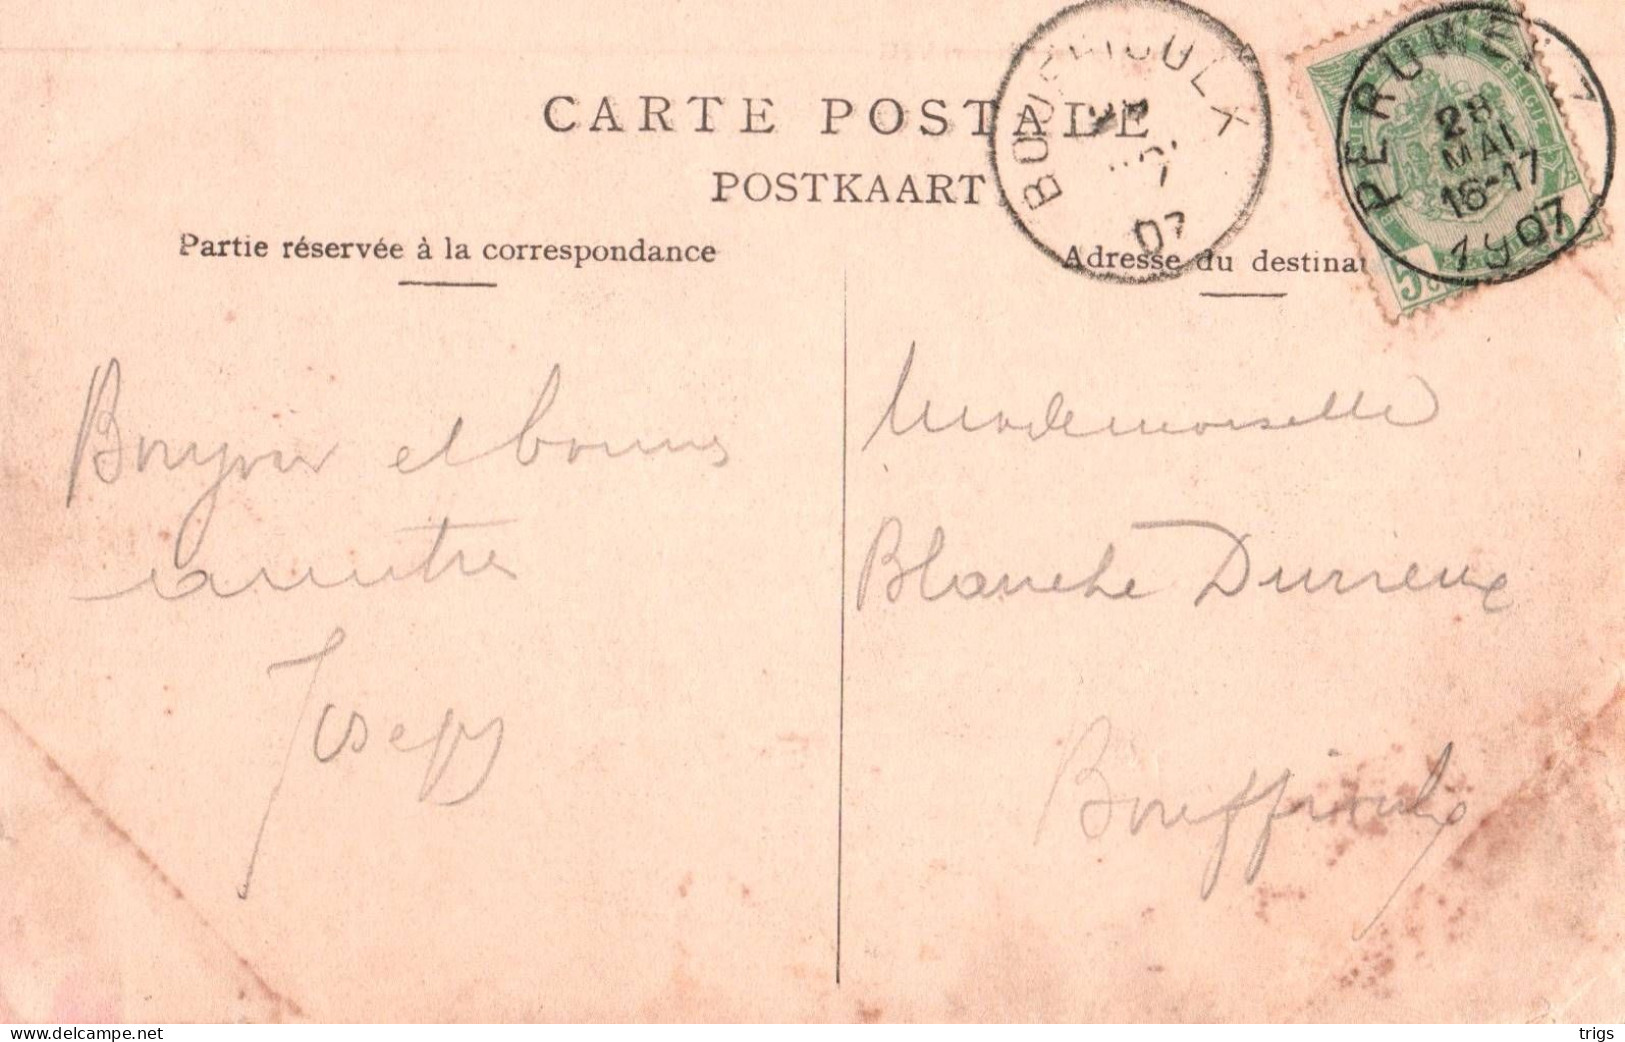 CARTE POSTALE
POSTKAART
BOUFFIOULX
07
PERUWELZ
28
MAI
16-17
1907
BELGIQUE
5
Partie réservée à la correspondance
Adresse du destinat
Bonjour et bonne
Joseph
Mademoiselle
Blanche Durieux
Bouffioulx
www.delcampe.net
trigs